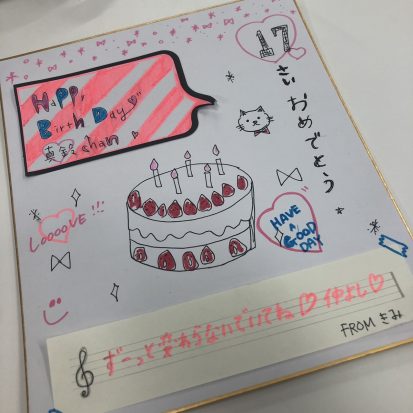 Happy
Birth Day
真鈴chan
17
さい おめでとう
LOOOOVE!!!
HAVE
A
GOOD
DAY
ずーっと変わらないでいてね♡仲よし♡
FROM きみ